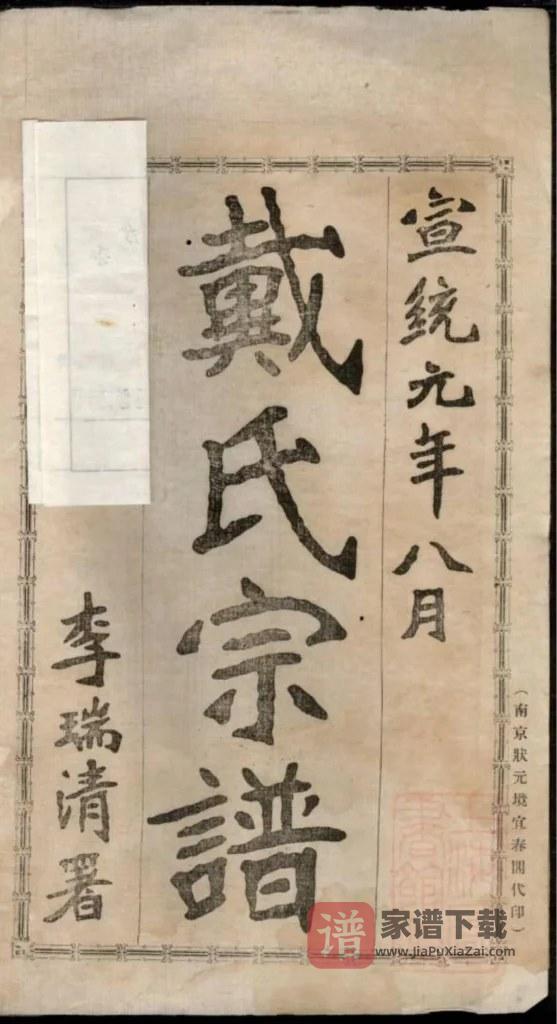 宣統元年八月
戴氏宗譜
李瑞清署
(南京狀元境宜春閣代印)
谱 家谱下载
www.JiaPuXiaZai.com